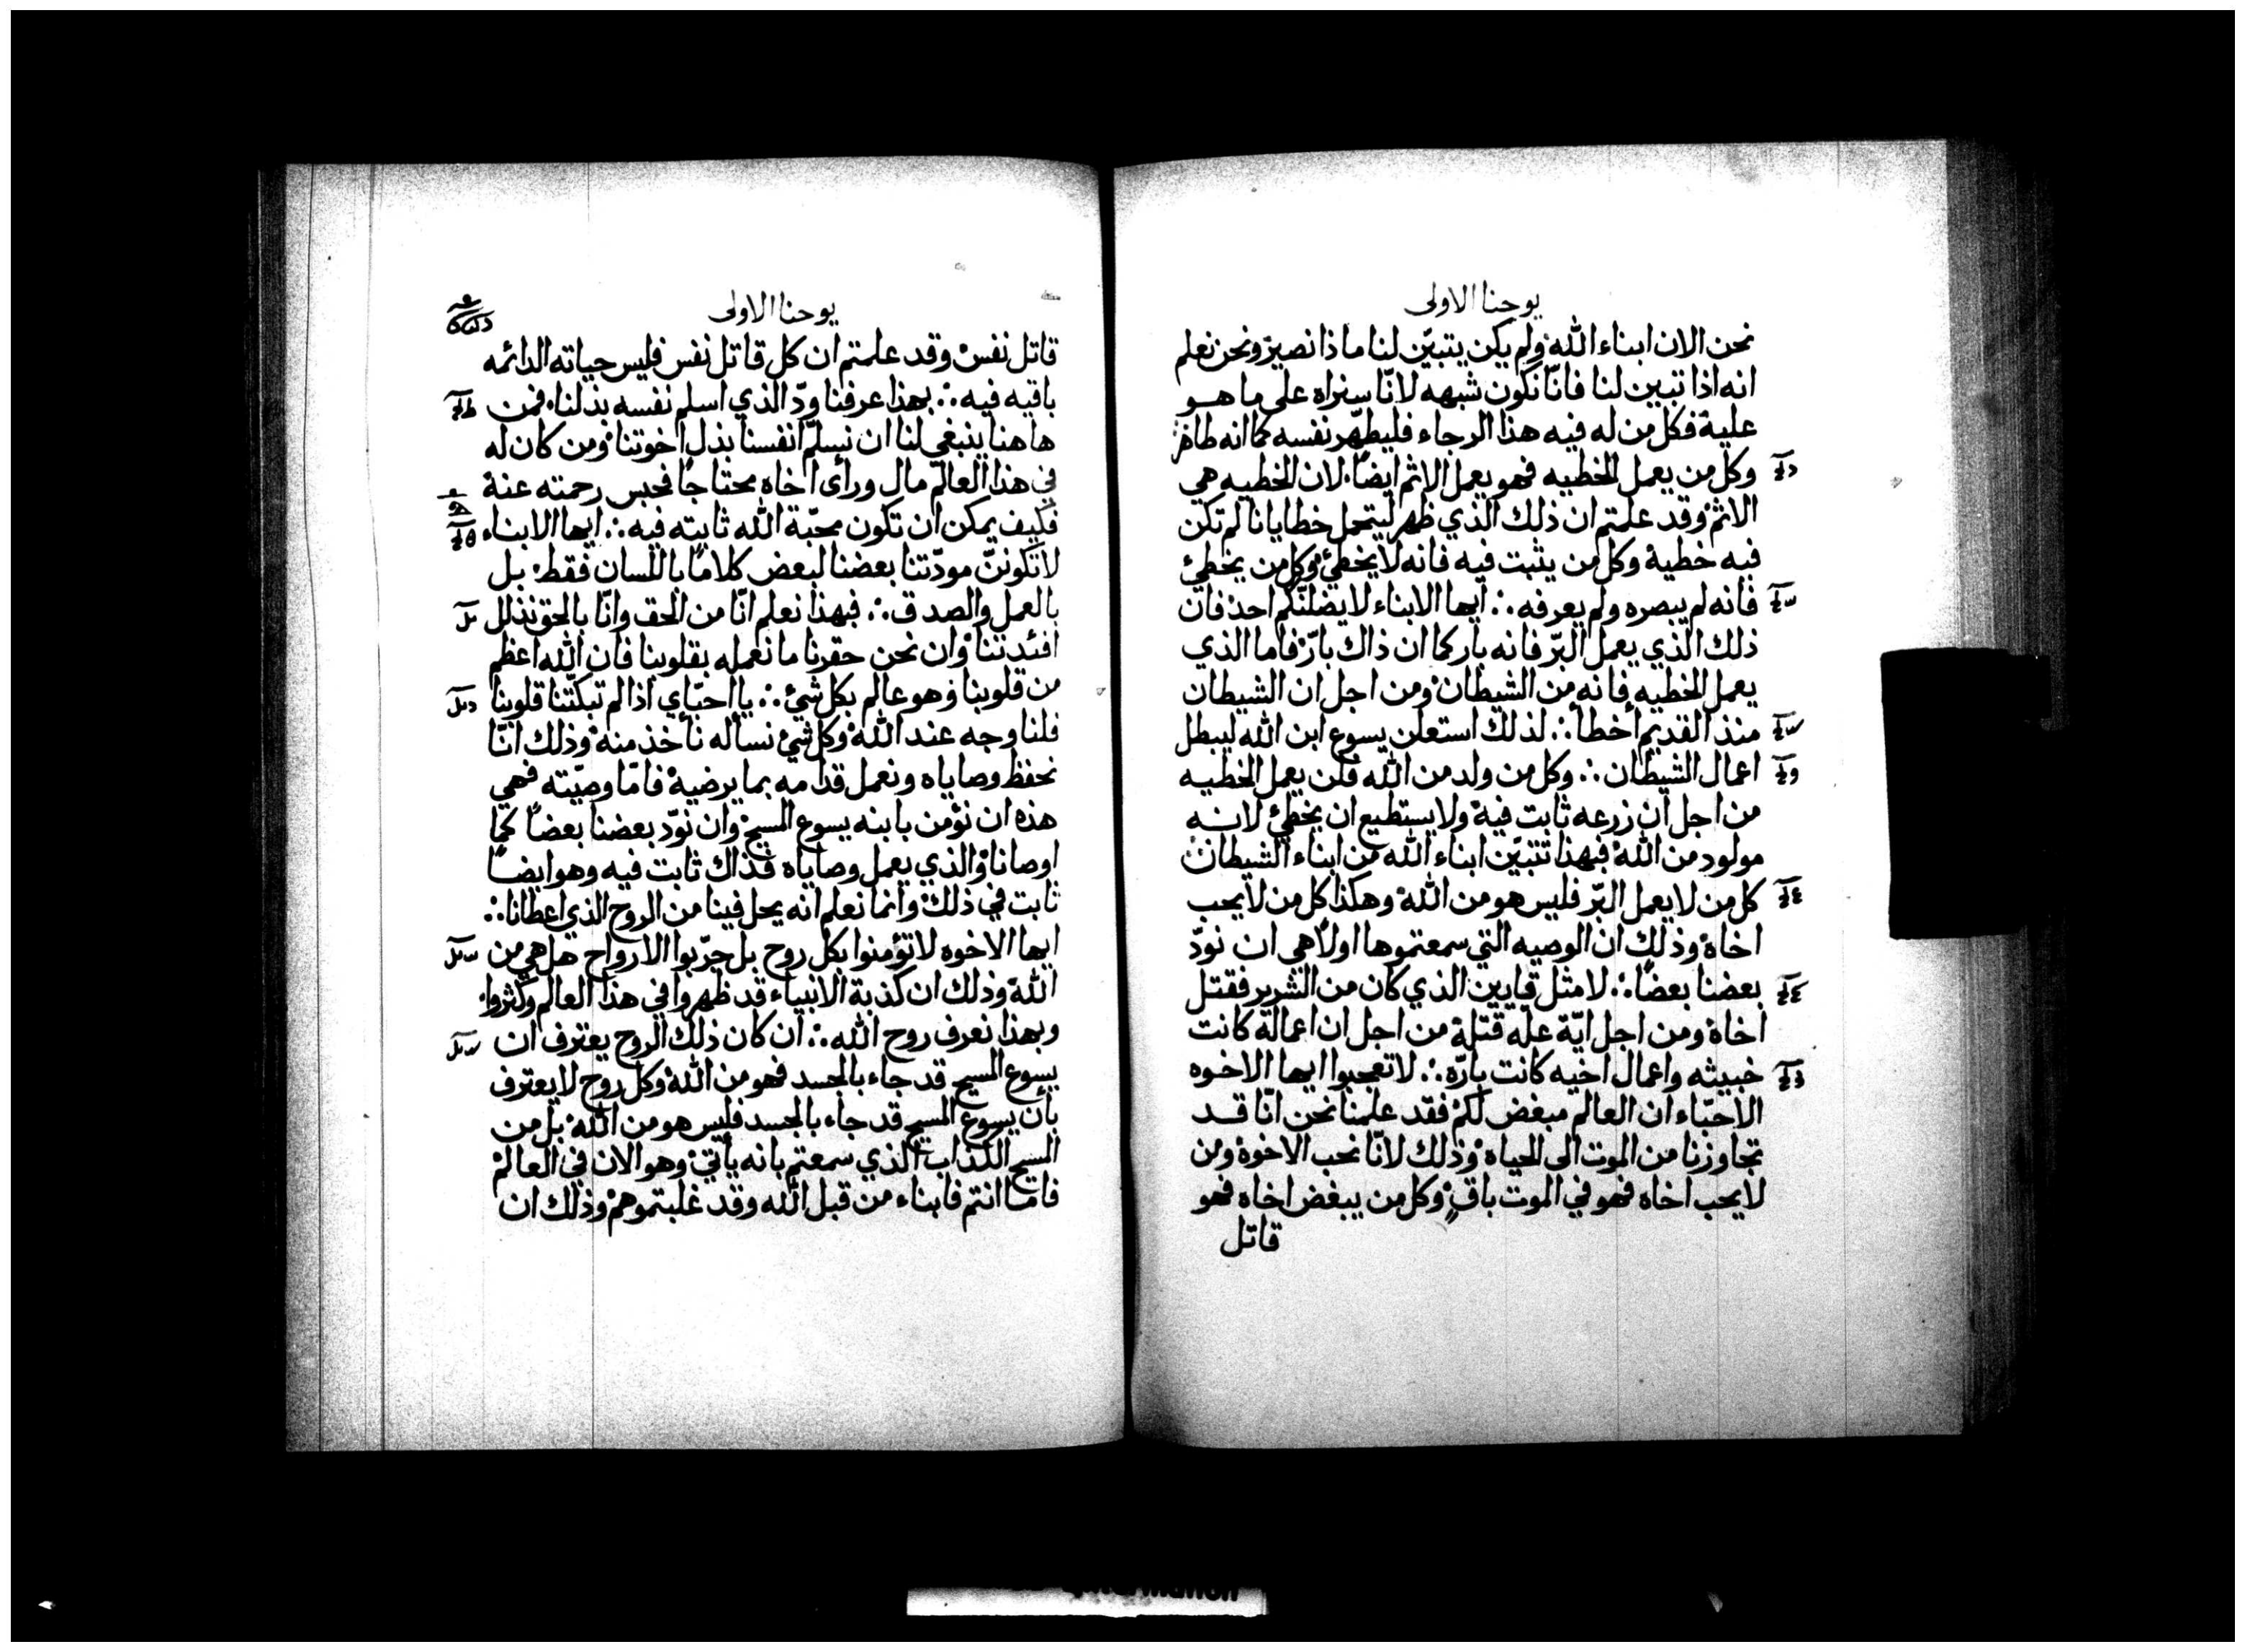 يوحنا الاولى
نحن الان ابناء الله ولم يكن يتبيّن لنا ماذا نصير ونحن نعلم
انه اذا تبين لنا فانّا نكون شبهه لانّا سنراه على ما هو
علية فكل من له فيه هذا الرجاء فليطهّر نفسه كما انه طاهر
وكل من يعمل الخطيه فهو يعمل الاثم ايضًا. لان الخطيه هي
الاثم وقد علمتم ان ذلك الذي ظهر ليتحمل خطايانا لم تكن
فيه خطية وكل من يثبت فيه فانه لا يخطئ وكل من يخطئ
فانه لم يبصره ولم يعرفه ∴ ايها الابناء لا يضلنّكم احد فان
ذلك الذي يعمل البرّ فانه بار كما ان ذاك بارّ فاما الذي
يعمل الخطيه فانه من الشيطان ومن اجل ان الشيطان
منذ القديم أخطأ ∴ لذلك استعلن يسوع ابن الله ليبطل
اعمال الشيطان ∴ وكل من ولد من الله فلن يعمل الخطيه
من اجل ان زرعه ثابت فية ولا يستطيع ان يخطئ لانه
مولود من الله فبهذا تتبيّن ابناء الله من ابناء الشيطان
كل من لا يعمل البرّ فليس هو من الله وهكذا كل من لا يحب
اخاه وذلك ان الوصيه التي سمعتموها اولًا هي ان نودّ
بعضنا بعضًا ∴ لا مثل قايين الذي كان من الشرير فقتل
اخاه ومن اجل ايّة علّه قتلة من اجل ان اعمالة كانت
خبيثه واعمال اخيه كانت بارّه ∴ لا تعجبوا ايها الاخوه
الاحبّاء ان العالم مبغض لكم فقد علمنا نحن انّا قد
تجاوزنا من الموت الى الحياه وذلك لانّا نحب الاخوة ومن
لا يحب اخاه فهو في الموت باقٍ وكل من يبغض اخاه فهو
قاتل
يوحنا الاولى
قاتل نفس وقد علمتم ان كل قاتل نفس فليس حياته الدائمه
باقيه فيه ∴ بهذا عرفنا ودّ الذي اسلم نفسه بذلنا. فمن
هاهنا ينبغي لنا ان نسلّم انفسنا بذل اخوتنا ومن كان له
في هذا العالم مال ورأى أخاه محتاجًا فحبس رحمته عنة
فكيف يمكن ان تكون محبّة الله ثابته فيه ∴ ايها الابناء
لا تكوننّ مودّتنا بعضنا لبعض كلامًا باللسان فقط بل
بالعمل والصدق ∴ فبهذا نعلم انّا من الحق وانّا بالحق نذلل
افئدتنا وان نحن حقرنا ما نعمله بقلوبنا فان الله اعظم
من قلوبنا وهو عالم بكل شيء ∴ يا احبّاي اذا لم تبكّتنا قلوبنا
فلنا وجه عند الله وكل شئ نسأله نأخذ منه وذلك انّا
نحفظ وصاياه ونعمل قدامه بما يرضية فامّا وصيّته فهي
هذه ان نؤمن بابنه يسوع المسيح وان نودّ بعضنا بعضًا كما
اوصانا والذي يعمل وصاياه فذاك ثابت فيه وهو ايضًا
ثابت في ذلك وانما نعلم انه يحل فينا من الروح الذي اعطانا ∴
ايها الاخوه لا تؤمنوا بكل روح بل جرّبوا الارواح هل هي من
الله وذلك ان كذبة الانبياء قد ظهروا في هذا العالم وكثروا.
وبهذا نعرف روح الله ∴ ان كان ذلك الروح يعترف ان
يسوع المسيح قد جاء بالجسد فهو من الله وكل روح لا يعترف
بأن يسوع المسيح قد جاء بالجسد فليس هو من الله بل من
المسيح الكذاب الذي سمعتم بانه يأتي وهو الان في العالم
فاما انتم فابناء من قبل الله وقد غلبتموهم وذلك ان